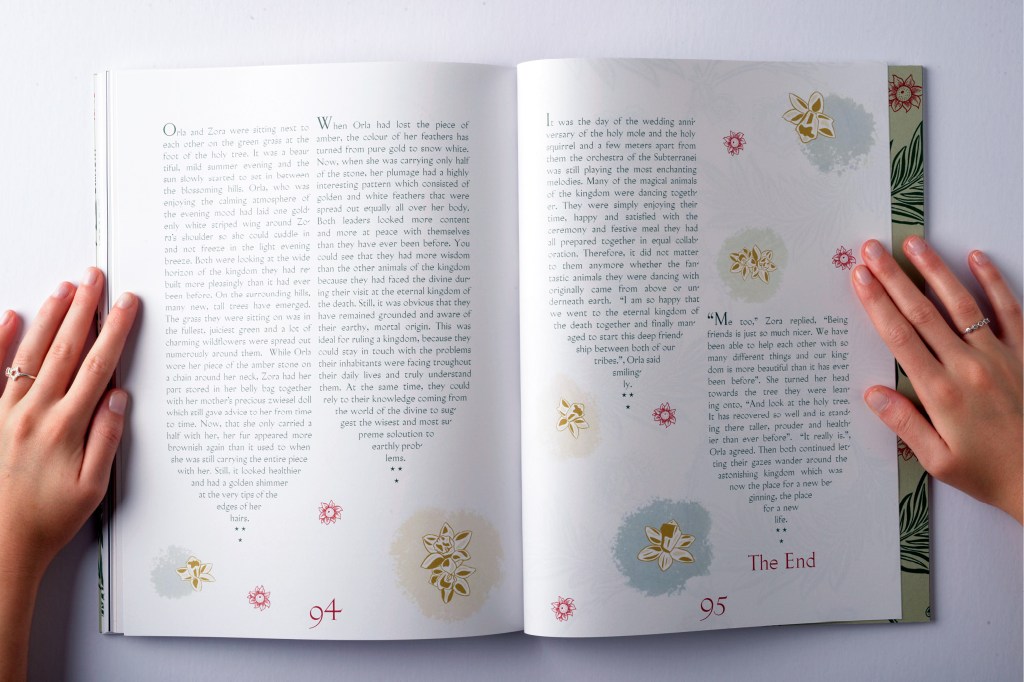 Orla and Zora were sitting next to
each other on the green grass at the
foot of the holy tree. It was a beau-
tiful, mild summer evening and the
sun slowly started to set in between
the blossoming hills. Orla, who was
enjoying the calming atmosphere of
the evening mood had laid one gold-
enly white striped wing around Zo-
ra's shoulder so she could cuddle in
and not freeze in the light evening
breeze. Both were looking at the wide
horizon of the kingdom they had re-
built more pleasingly than it had ever
been before. On the surrounding hills,
many new, tall trees have emerged.
The grass they were sitting on was in
the fullest, juiciest green and a lot of
charming wildflowers were spread out
numorously around them. While Orla
wore her piece of the amber stone on
a chain around her neck, Zora had her
part stored in her belly bag together
with her mother's precious zwiesel doll
which still gave advice to her from time
to time. Now, that she only carried a
half with her, her fur appeared more
brownish again than it used to when
she was still carrying the entire piece
with her. Still, it looked healthier
and had a golden shimmer
at the very tips of the
edges of her
hairs.
When Orla had lost the piece of
amber, the colour of her feathers has
turned from pure gold to snow white.
Now, when she was carrying only half
of the stone, her plumage had a highly
interesting pattern which consisted of
golden and white feathers that were
spread out equally all over her body.
Both leaders looked more content
and more at peace with themselves
than they have ever been before. You
could see that they had more wisdom
than the other animals of the kingdom
because they had faced the divine dur-
ing their visit at the eternal kingdom of
the death. Still, it was obvious that they
have remained grounded and aware of
their earthy, mortal origin. This was
ideal for ruling a kingdom, because they
could stay in touch with the problems
their inhabitants were facing troughout
their daily lives and truly understand
them. At the same time, they could
rely to their knowledge coming from
the world of the divine to sug-
gest the wisest and most su-
preme soloution to
earthly prob-
lems.
94
It was the day of the wedding anni-
versary of the holy mole and the holy
squirrel and a few meters apart from
them the orchestra of the Subterranei
was still playing the most enchanting
melodies. Many of the magical animals
of the kingdom were dancing togeth-
er. They were simply enjoying their
time, happy and satisfied with the
ceremony and festive meal they had
all prepared together in equal collab-
oration. Therefore, it did not matter
to them anymore whether the fan-
tastic animals they were dancing with
originally came from above or un-
derneath earth. “I am so happy that
we went to the eternal kingdom of
the death together and finally man-
aged to start this deep friend-
ship between both of our
tribes.”, Orla said
smiling-
ly.
“Me too,” Zora replied, “Being
friends is just so much nicer. We have
been able to help each other with so
many different things and our king-
dom is more beautiful than it has ever
been before”. She turned her head
towards the tree they were lean-
ing onto, “And look at the holy tree.
It has recovered so well and is stand-
ing there taller, prouder and health-
ier than ever before”. “It really is.”,
Orla agreed. Then both continued let-
ting their gazes wander around the
astonishing kingdom which was
now the place for a new be-
ginning, the place
for a new
life.
The End
95